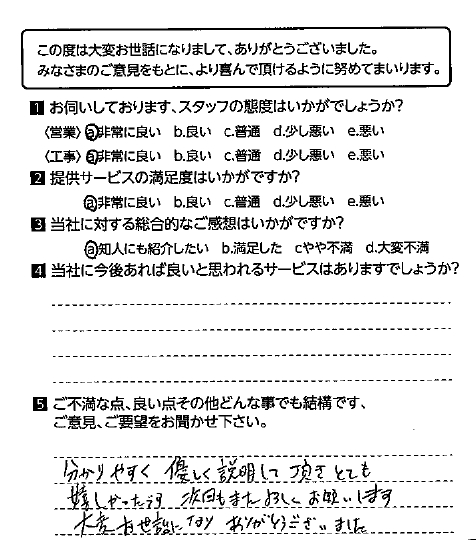 この度は大変お世話になりまして、ありがとうございました。
みなさまのご意見をもとに、より喜んで頂けるように努めてまいります。
1 お伺いしております、スタッフの態度はいかがでしょうか?
〈営業〉 a.非常に良い b.良い c.普通 d.少し悪い e.悪い
〈工事〉 a.非常に良い b.良い c.普通 d.少し悪い e.悪い
2 提供サービスの満足度はいかがですか?
a.非常に良い b.良い c.普通 d.少し悪い e.悪い
3 当社に対する総合的なご感想はいかがですか?
a.知人にも紹介したい b.満足した cやや不満 d.大変不満
4 当社に今後あれば良いと思われるサービスはありますでしょうか?
5 ご不満な点、良い点その他どんな事でも結構です、
ご意見、ご要望をお聞かせ下さい。
分かりやすく 優しく説明して頂きとても
嬉しかったです 次回もまたよろしくお願いします
大変お世話になり ありがとうございました